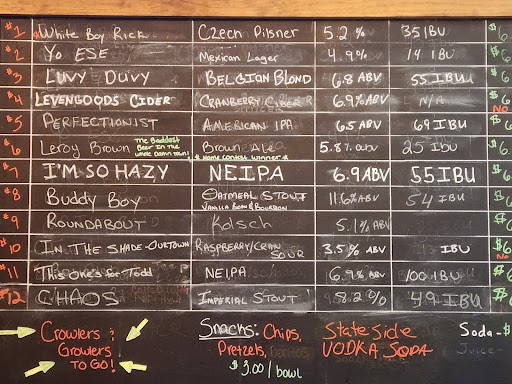 #1 White Boy Rick Czech Pilsner 5.2% 35 IBU $6
#2 Yo ESE Mexican Lager 4.9% 14 IBU $6
#3 Luvy Duvy Belgian Blond 6.8 ABV 55 IBU $6
#4 Levengoods Cider Cranberry Cider 6.9% ABV N/A $6 No
#5 Perfectionist American IPA 6.5 ABV 69 IBU $6
#6 Leroy Brown The Baddest Beer In the whole Damn town! Brown Ale * Home Contest Winner * 5.8% 25 IBU $6
#7 I'm So Hazy NEIPA 6.9 ABV 55 IBU $6
#8 Buddy Boy Oatmeal Stout Vanilla Bean & Bourbon 11.6% ABV 54 IBU
#9 Roundabout Kolsch 5.1% ABV
#10 In The Shade-Ourtown Raspberry/Cran Sour 3.5% ABV IBU No
#11 This One's for Todd NEIPA 6.9% ABV 100 IBU $6
#12 CHAOS Imperial Stout 8.2% 49 IBU
Crowlers & Growlers TO GO!
Snacks: Chips, Pretzels,
$3.00 / bowl
State Side
VODKA SODA
Soda - $
Juice -